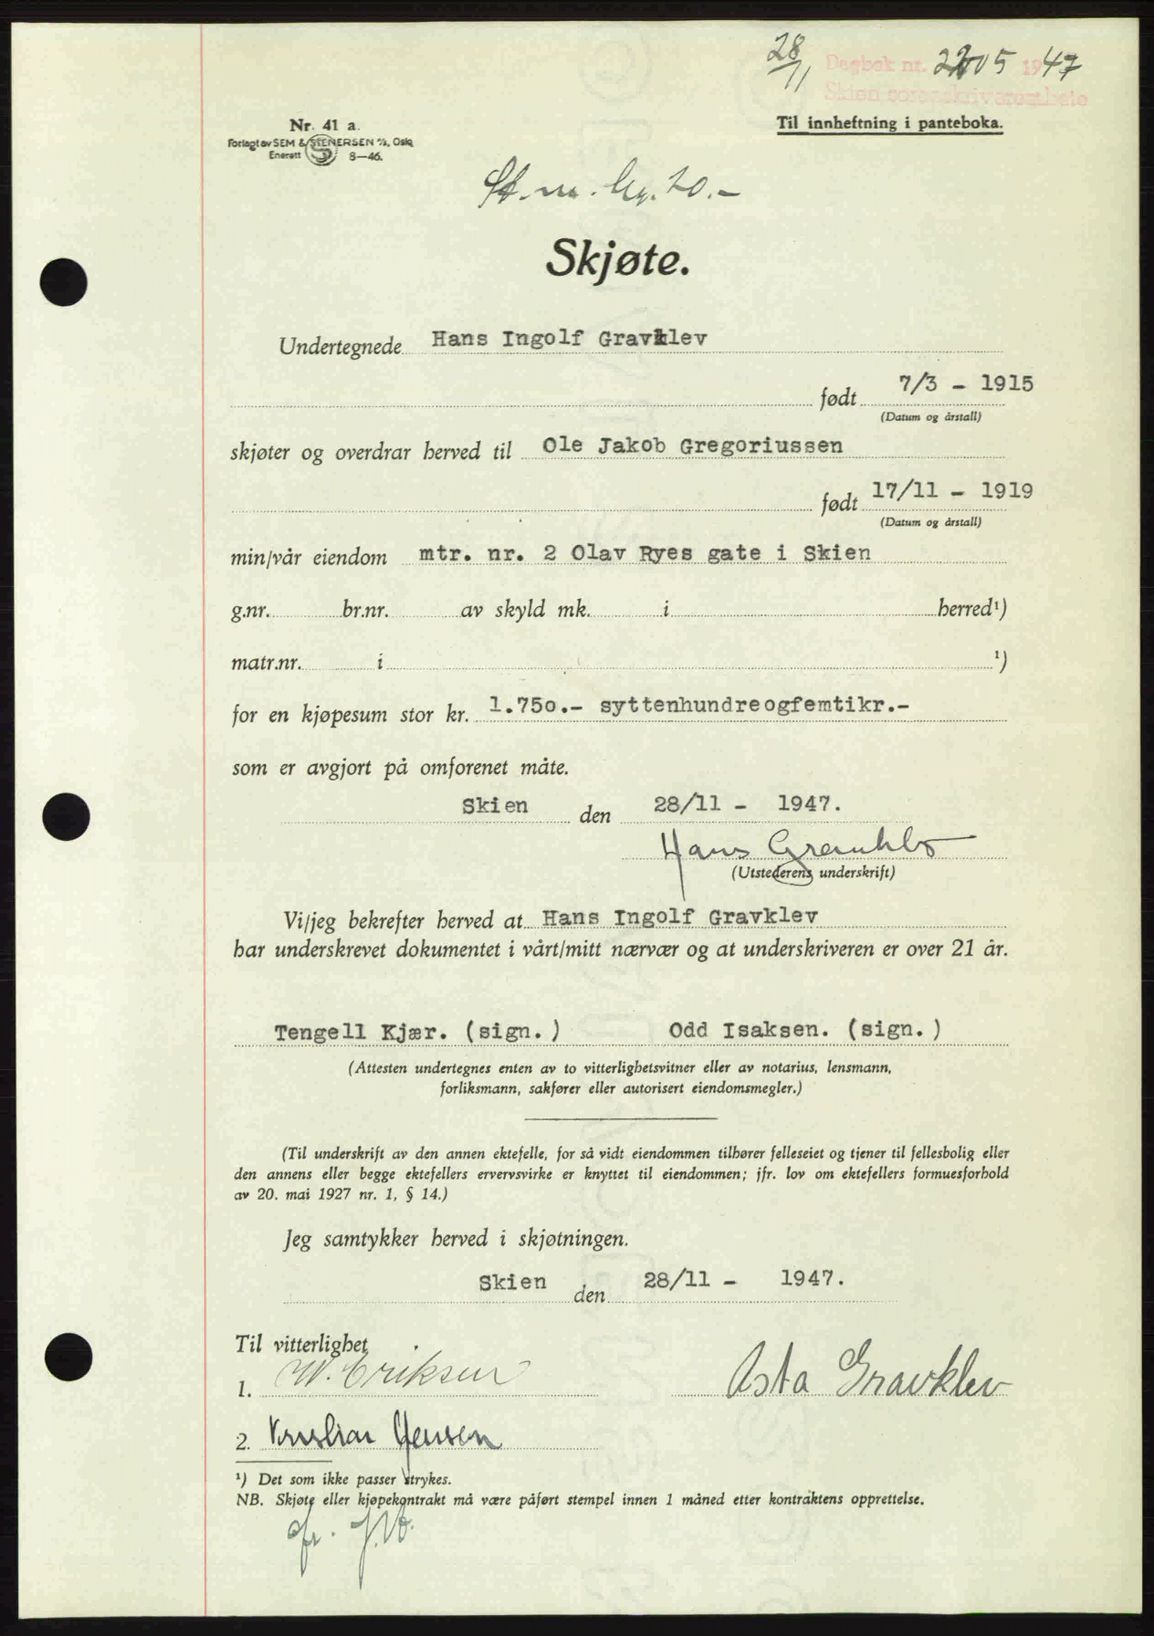 28/11 Dagbok nr. 2205 1947
Skien sorenskriverembete
Nr. 41 a.
Til innheftning i panteboka.
Forlagt av SEM & STENERSEN A/S, Oslo
Enerett 8—46.
St. m. kr. 20.-
Skjøte.
Undertegnede Hans Ingolf Gravklev
født 7/3 - 1915
(Datum og årstall)
skjøter og overdrar herved til Ole Jakob Gregoriussen
født 17/11 - 1919
(Datum og årstall)
min/vår eiendom mtr. nr. 2 Olav Ryes gate i Skien
g.nr. br.nr. av skyld mk. i herred¹)
matr.nr. i ¹)
for en kjøpesum stor kr. 1.750.- syttenhundreogfemtikr.-
som er avgjort på omforenet måte.
Skien den 28/11 - 1947.
Hans Gravklev
(Utstederens underskrift)
Vi/jeg bekrefter herved at Hans Ingolf Gravklev
har underskrevet dokumentet i vårt/mitt nærvær og at underskriveren er over 21 år.
Tengell Kjær. (sign.) Odd Isaksen. (sign.)
(Attesten undertegnes enten av to vitterlighetsvitner eller av notarius, lensmann,
forliksmann, sakfører eller autorisert eiendomsmegler.)
(Til underskrift av den annen ektefelle, for så vidt eiendommen tilhører felleseiet og tjener til fellesbolig eller
den annens eller begge ektefellers ervervsvirke er knyttet til eiendommen; jfr. lov om ektefellers formuesforhold
av 20. mai 1927 nr. 1, § 14.)
Jeg samtykker herved i skjøtningen.
Skien den 28/11 - 1947.
Til vitterlighet
1. W. Eriksen Asta Gravklev
2. Kristian Jensen
¹) Det som ikke passer strykes.
NB. Skjøte eller kjøpekontrakt må være påført stempel innen 1 måned etter kontraktens opprettelse.